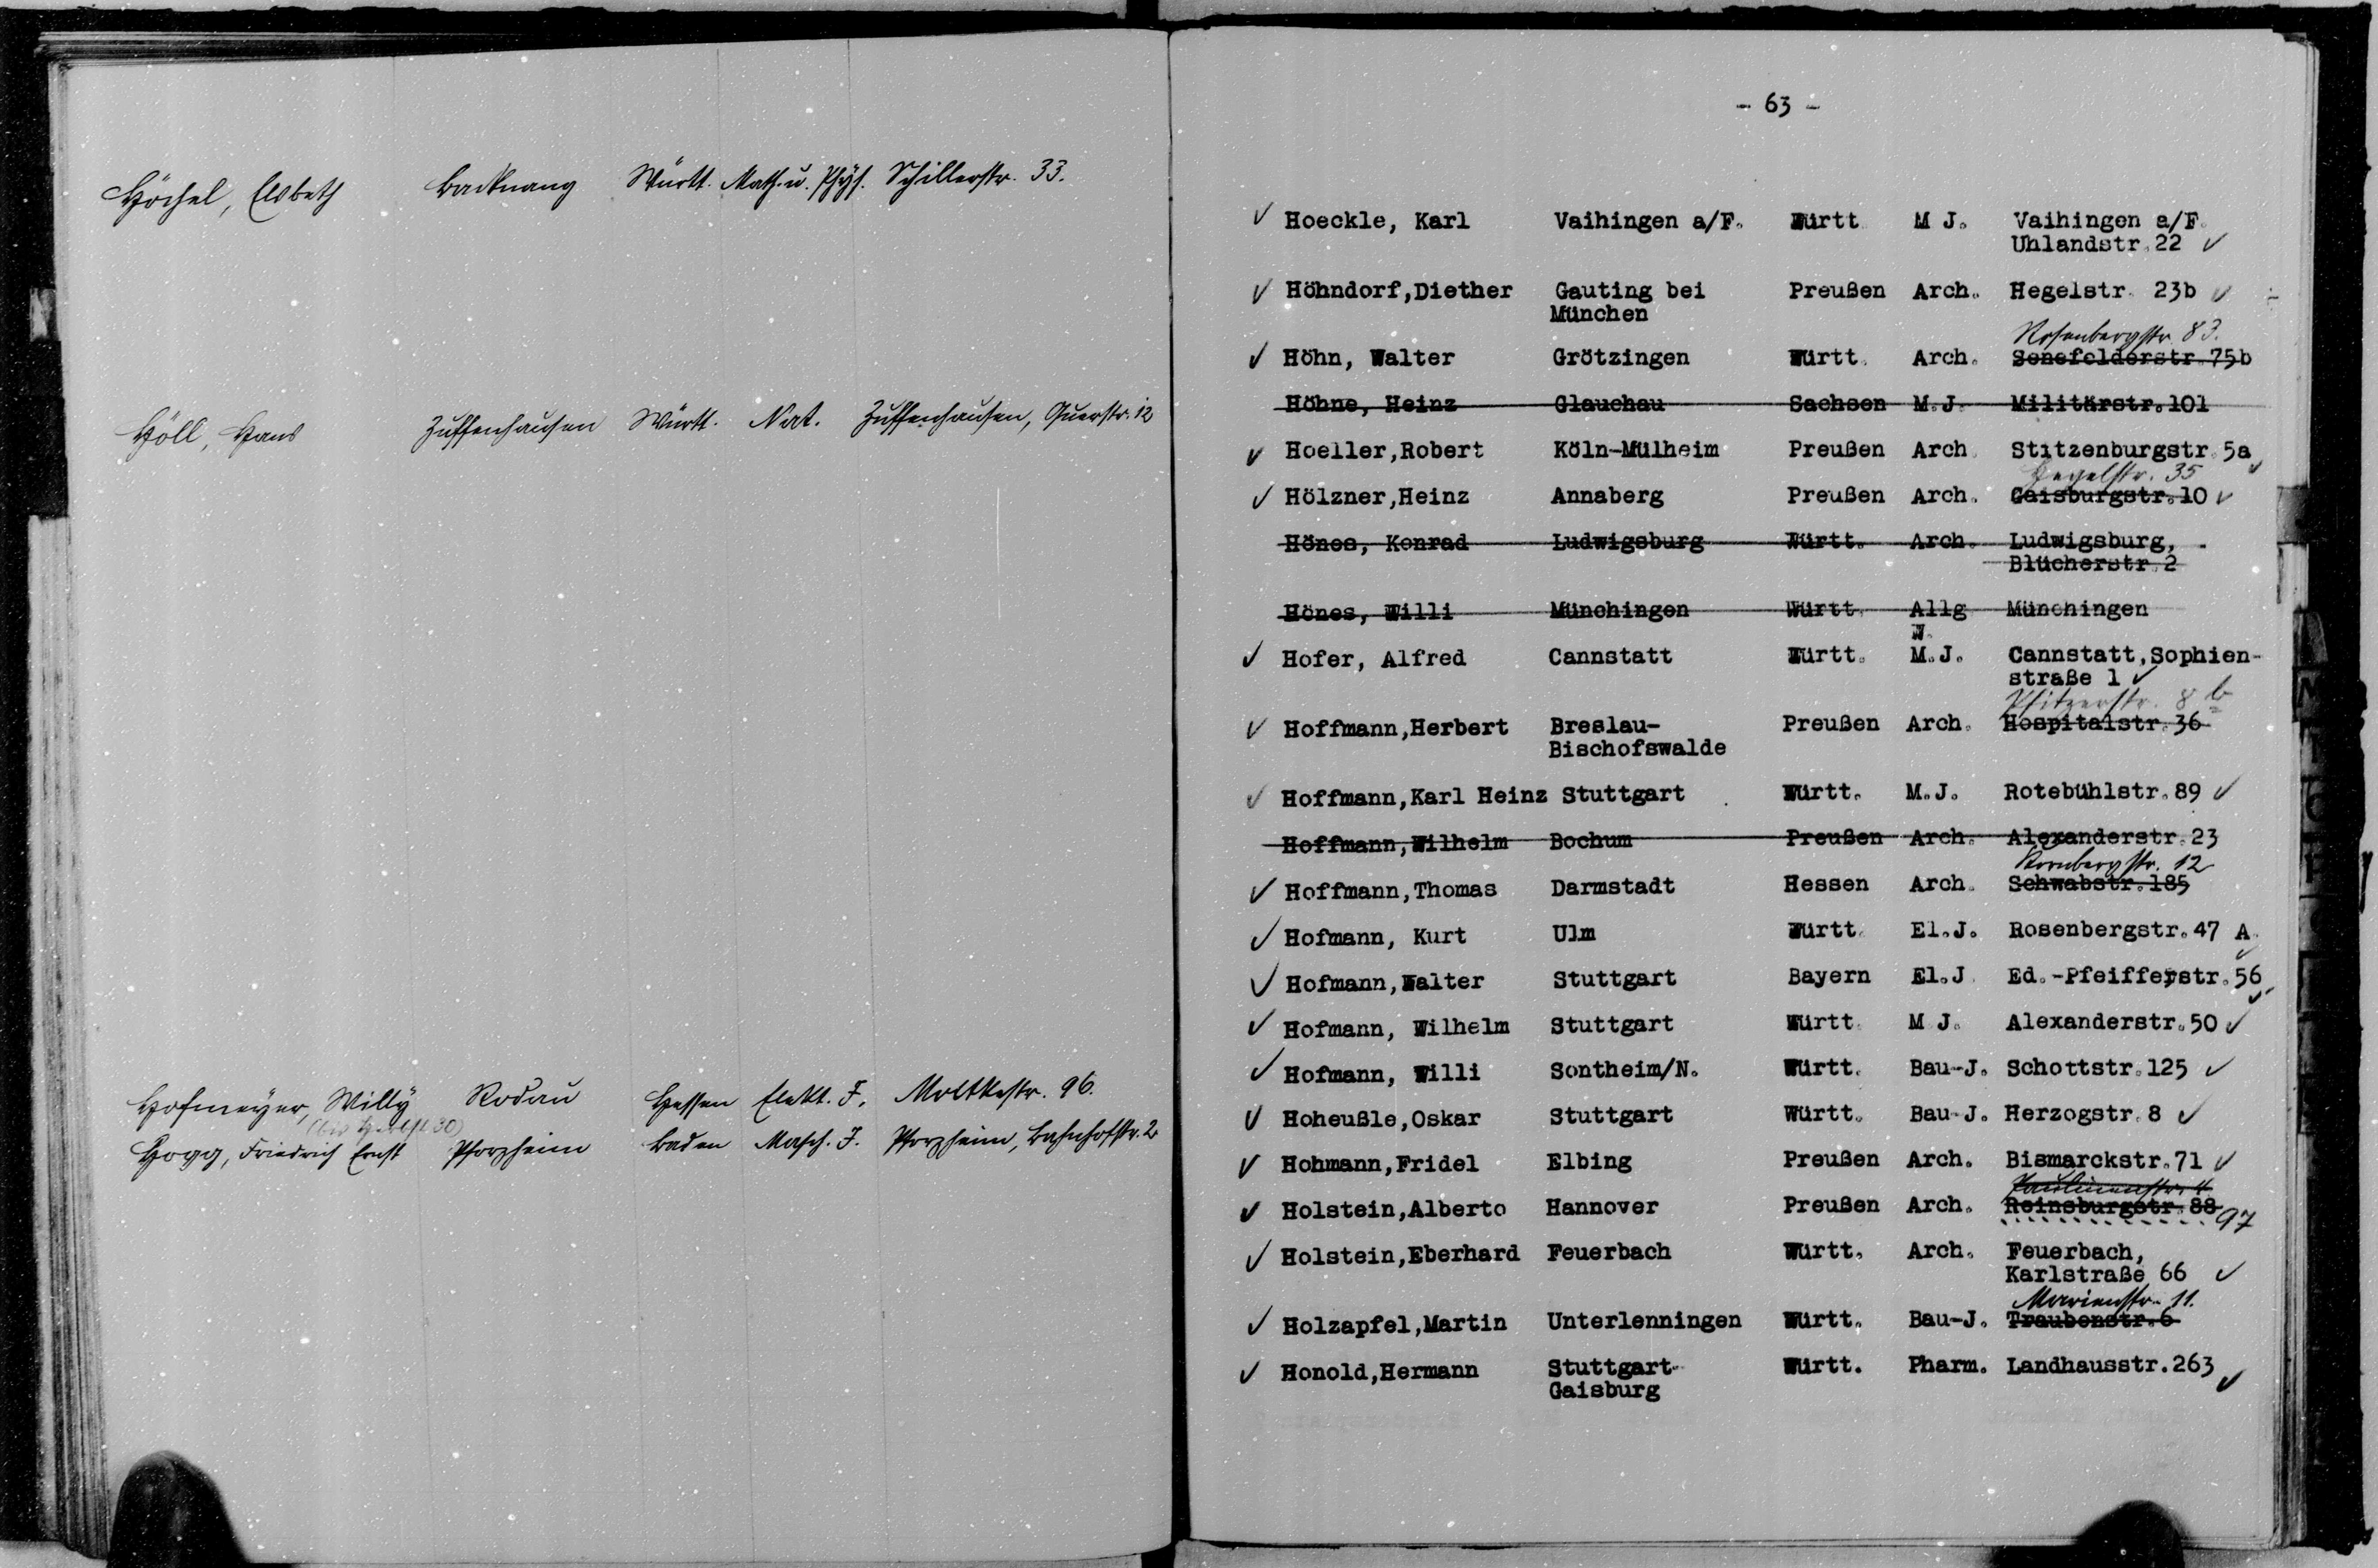 Höchel, Elsbeth Backnang Württ. Math. u. Phys. Schillerstr. 33.
Höll, Hans Zuffenhausen Württ. Nat. Zuffenhausen, Querstr. 12
Hofmeyer, Willy Rodau Hessen Elekt. J. Moltkestr. 96.
(bis Herbst 30)
Hogg, Friedrich Ernst Pforzheim Baden Masch. J. Pforzheim, Bahnhofstr. 2
- 63 -
✓ Hoeckle, Karl Vaihingen a/F. Württ. M J. Vaihingen a/F.
Uhlandstr. 22 ✓
✓ Höhndorf, Diether Gauting bei Preußen Arch. Hegelstr. 23b ✓
München
Rosenbergstr. 83.
✓ Höhn, Walter Grötzingen Württ. Arch. Senefelderstr. 75b
Höhne, Heinz Glauchau Sachsen M.J. Militärstr. 101
✓ Hoeller, Robert Köln-Mülheim Preußen Arch. Stitzenburgstr. 5a ✓
Hegelstr. 35
✓ Hölzner, Heinz Annaberg Preußen Arch. Gaisburgstr. 10 ✓
Hönes, Konrad Ludwigsburg Württ. Arch. Ludwigsburg,
Blücherstr. 2
Hönes, Willi Münchingen Württ. Allg Münchingen
W.
✓ Hofer, Alfred Cannstatt Württ. M.J. Cannstatt, Sophien-
straße 1 ✓
Pfitzerstr. 8 b
✓ Hoffmann, Herbert Breslau- Preußen Arch. Hospitalstr. 36
Bischofswalde
✓ Hoffmann, Karl Heinz Stuttgart Württ. M.J. Rotebühlstr. 89 ✓
Hoffmann, Wilhelm Bochum Preußen Arch. Alexanderstr. 23
Kornbergstr. 12
✓ Hoffmann, Thomas Darmstadt Hessen Arch. Schwabstr. 185
✓ Hofmann, Kurt Ulm Württ. El.J. Rosenbergstr. 47 A. ✓
✓ Hofmann, Walter Stuttgart Bayern El.J. Ed.-Pfeifferstr. 56 ✓
✓ Hofmann, Wilhelm Stuttgart Württ. M J. Alexanderstr. 50 ✓
✓ Hofmann, Willi Sontheim/N. Württ. Bau-J. Schottstr. 125 ✓
✓ Hoheußle, Oskar Stuttgart Württ. Bau-J. Herzogstr. 8 ✓
✓ Hohmann, Fridel Elbing Preußen Arch. Bismarckstr. 71 ✓
Paulinenstr. 4
✓ Holstein, Alberto Hannover Preußen Arch. Reinsburgstr. 88 97
✓ Holstein, Eberhard Feuerbach Württ. Arch. Feuerbach,
Karlstraße 66 ✓
Marienstr. 11.
✓ Holzapfel, Martin Unterlenningen Württ. Bau-J. Traubenstr. 6
✓ Honold, Hermann Stuttgart- Württ. Pharm. Landhausstr. 263 ✓
Gaisburg